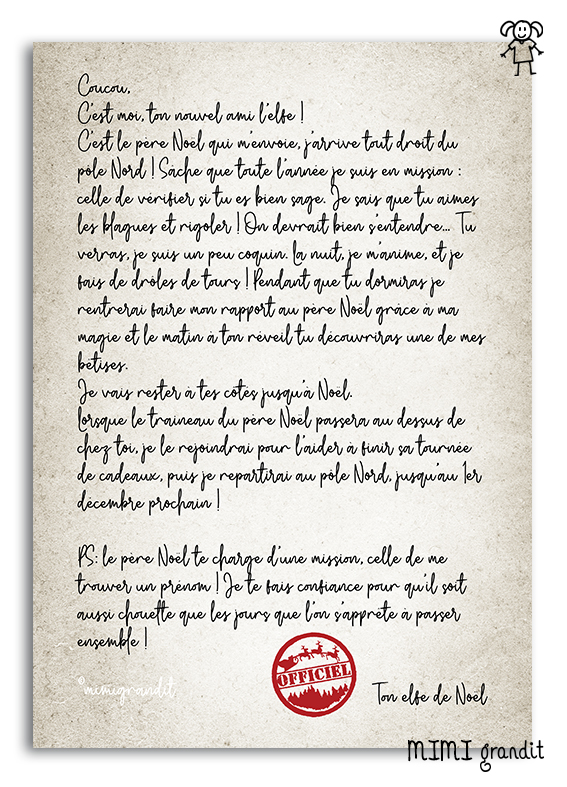 Coucou,
C'est moi, ton nouvel ami l'elfe !
C'est le père Noël qui m'envoie, j'arrive tout droit du
pôle Nord ! Sâche que toute l'année je suis en mission :
celle de vérifier si tu es bien sage. Je sais que tu aimes
les blagues et rigoler ! On devrait bien s'entendre... Tu
verras, je suis un peu coquin. La nuit, je m'anime, et je
fais de drôles de tours ! Pendant que tu dormiras je
rentrerai faire mon rapport au père Noël grâce à ma
magie et le matin à ton réveil tu découvriras une de mes
bêtises.
Je vais rester à tes côtés jusqu'à Noël.
Lorsque le traineau du père Noël passera au dessus de
chez toi, je le rejoindrai pour l'aider à finir sa tournée
de cadeaux, puis je repartirai au pôle Nord, jusqu'au 1er
décembre prochain !
PS: le père Noël te charge d'une mission, celle de me
trouver un prénom ! Je te fais confiance pour qu'il soit
aussi chouette que les jours que l'on s'apprête à passer
ensemble !
OFFICIEL
©mimigrandit
Ton elfe de Noël
MIMI grandit